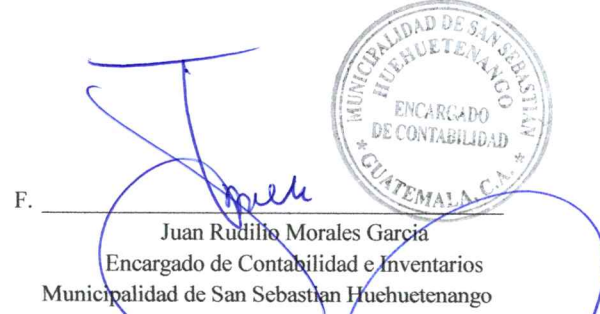 MUNICIPALIDAD DE SAN SEBASTIÁN
HUEHUETENANGO
ENCARGADO
DE CONTABILIDAD
* GUATEMALA, C.A. *
F.
Juan Rudilio Morales Garcia
Encargado de Contabilidad e Inventarios
Municipalidad de San Sebastian Huehuetenango